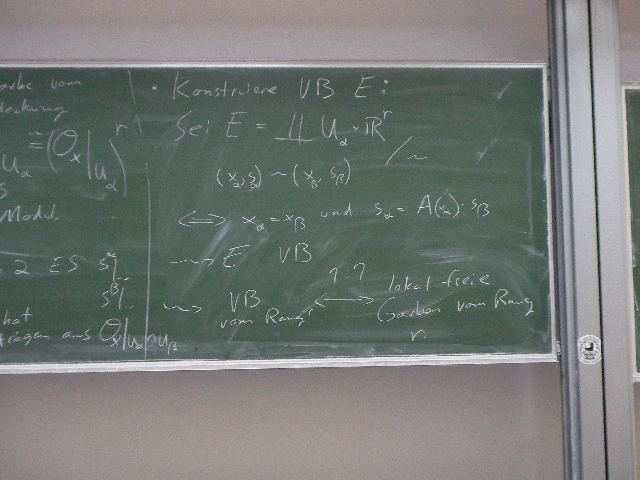 U_α ≅ (O_x|U_α)^r
Modul.
2 ES s^α|..
s^β|..
hat
aus O_x|U_α∩U_β
• Konstruiere VB E:
Sei E = ∐ U_α × ℝ^r
/~
(x_α, s_α) ~ (x_β, s_β)
⟺ x_α = x_β und s_α = A(x_α) · s_β
⇝ E VB
⇝ VB vom Rang r ⟷ 1:1 lokal-freie
Garben vom Rang
r.